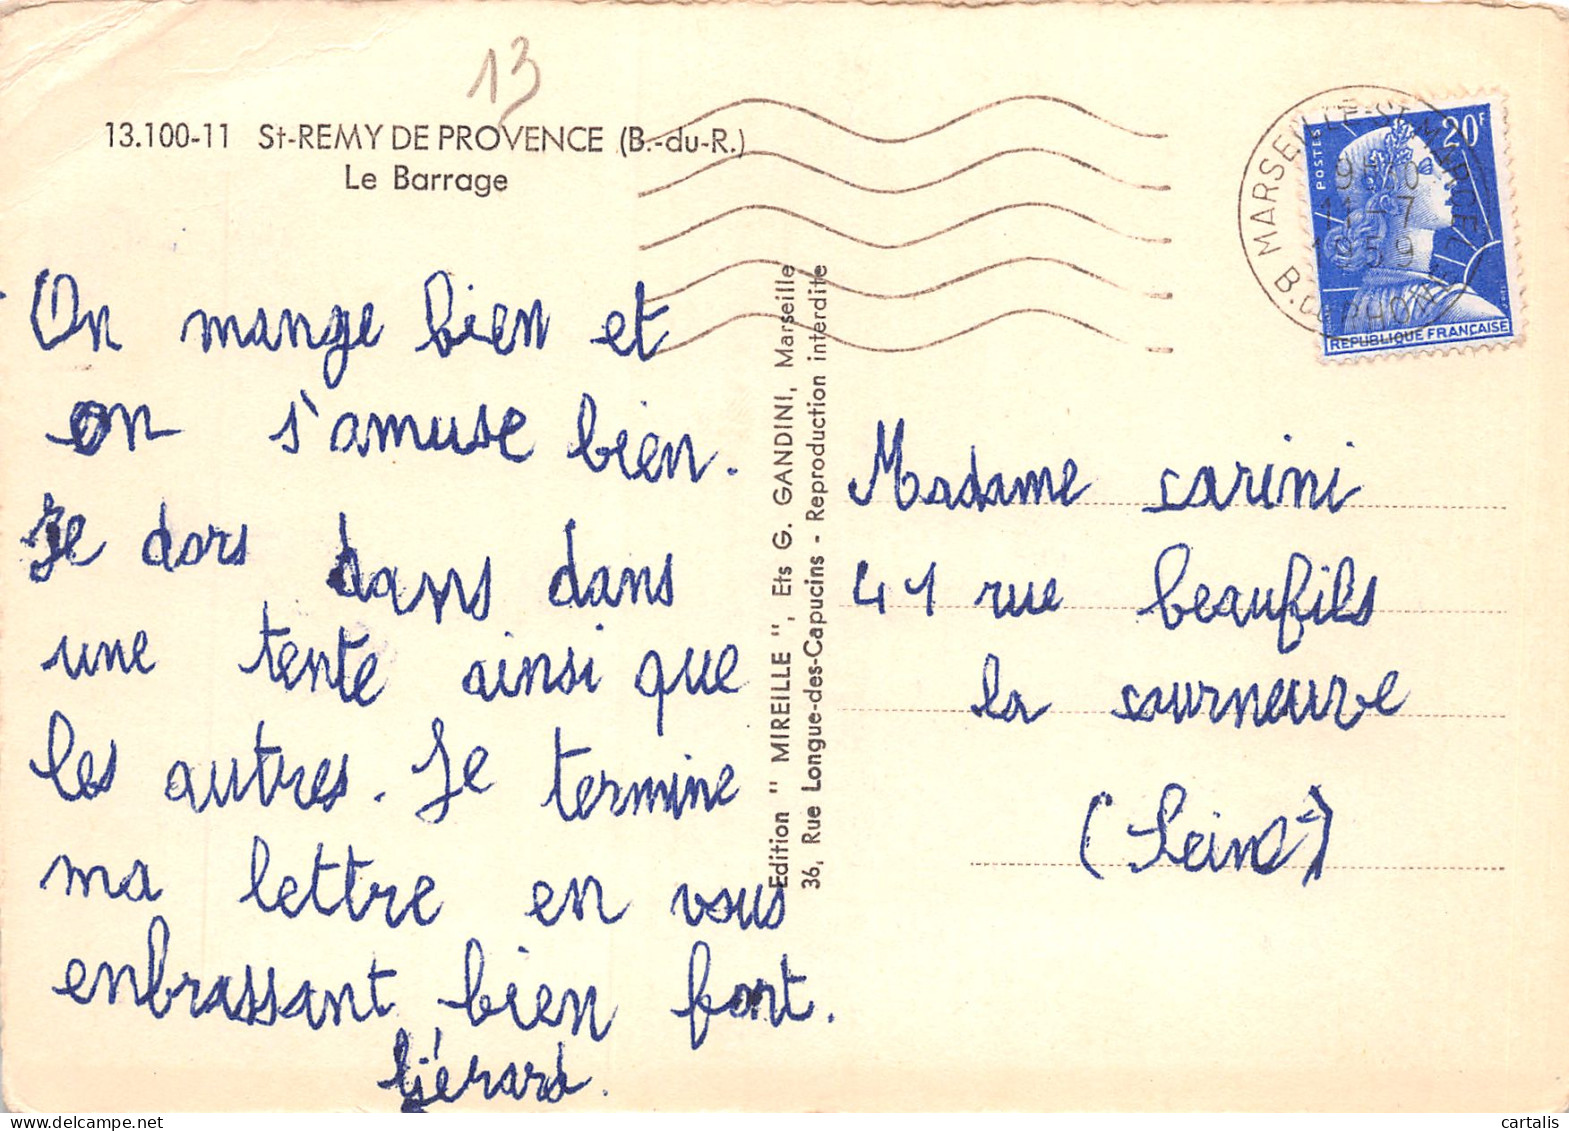 13
13.100-11 St-REMY DE PROVENCE (B.-du-R.)
Le Barrage
On mange bien et
on s'amuse bien.
Je dors dans dans
une tente ainsi que
les autres. Je termine
ma lettre en vous
enbrassant bien fort.
Gérard.
Edition " MIREILLE ", Ets G. GANDINI, Marseille
36, Rue Longue-des-Capucins - Reproduction interdite
MARSEILLE-ST MARCEL
B. du RHONE
11-7
1959
POSTES
20F
REPUBLIQUE FRANÇAISE
Madame Carini
41 rue beaufils
la Courneuve
(Seine)
cartalis